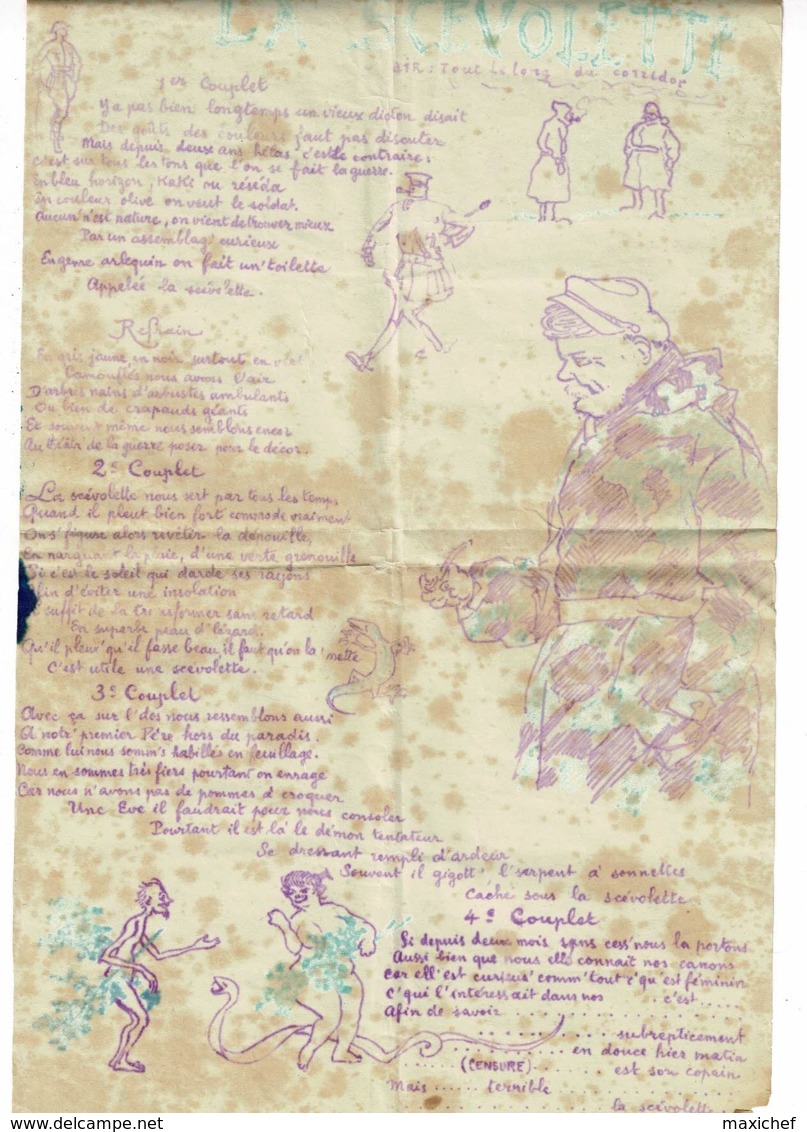 LA SCÉVOLETTE
AIR : Tout le long du corridor
1er Couplet
Y'a pas bien longtemps un vieux dicton disait
Des goûts des couleurs faut pas discuter
Mais depuis deux ans hélas, c'est le contraire :
C'est sur tous les tons que l'on se fait la guerre.
En bleu horizon, Kaki ou réséda
En couleur olive on veut le soldat.
Aucun n'est nature, on vient de trouver mieux
Par un assemblag' curieux
En genre arlequin on fait un' toilette
Appelée la scévolette.
Refrain
En gris, jaune, en noir surtout en
Camouflés nous avons l'air
D'arbres nains d'arbustes ambulants
Ou bien de crapauds géants
Et souvent même nous semblons encor
Au théâtr de la guerre poser pour le décor.
2e Couplet
La scévolette nous sert par tous les temps
Quand il pleut bien fort commode vraiment
On s'figure alors revêtir la dépouille,
En narguant la pluie, d'une verte grenouille
Si c'est le soleil qui darde ses rayons
Afin d'éviter une insolation
Il suffit de la transformer sans retard
En superbe peau d'lézard.
Qu'il pleuv' qu'il fasse beau, il faut qu'on la mette
C'est utile une scévolette.
3e Couplet
Avec ça sur l'dos nous ressemblons aussi
A notr' premier Père hors du paradis.
Comme lui nous somm's habillés en feuillage.
Nous en sommes très fiers pourtant on enrage
Car nous n'avons pas de pommes à croquer
Une Eve il faudrait pour nous consoler
Pourtant il est là le démon tentateur
Se dressant rempli d'ardeur
Souvent il gigott' l'serpent à sonnettes
Caché sous la scévolette
4e Couplet
Si depuis deux mois sans cess' nous la portons
Aussi bien que nous elle connait nos canons
Car ell' est curieus' comm' tout c'qu'est féminin
C'qui l'intéressait dans nos c'est .....
Afin de savoir ..........
.......... subrepticement
.......... en douce hier matin
..... (CENSURE) ........ est son copain
Mais ..... terrible ..........
.......... la scévolette
maxichef